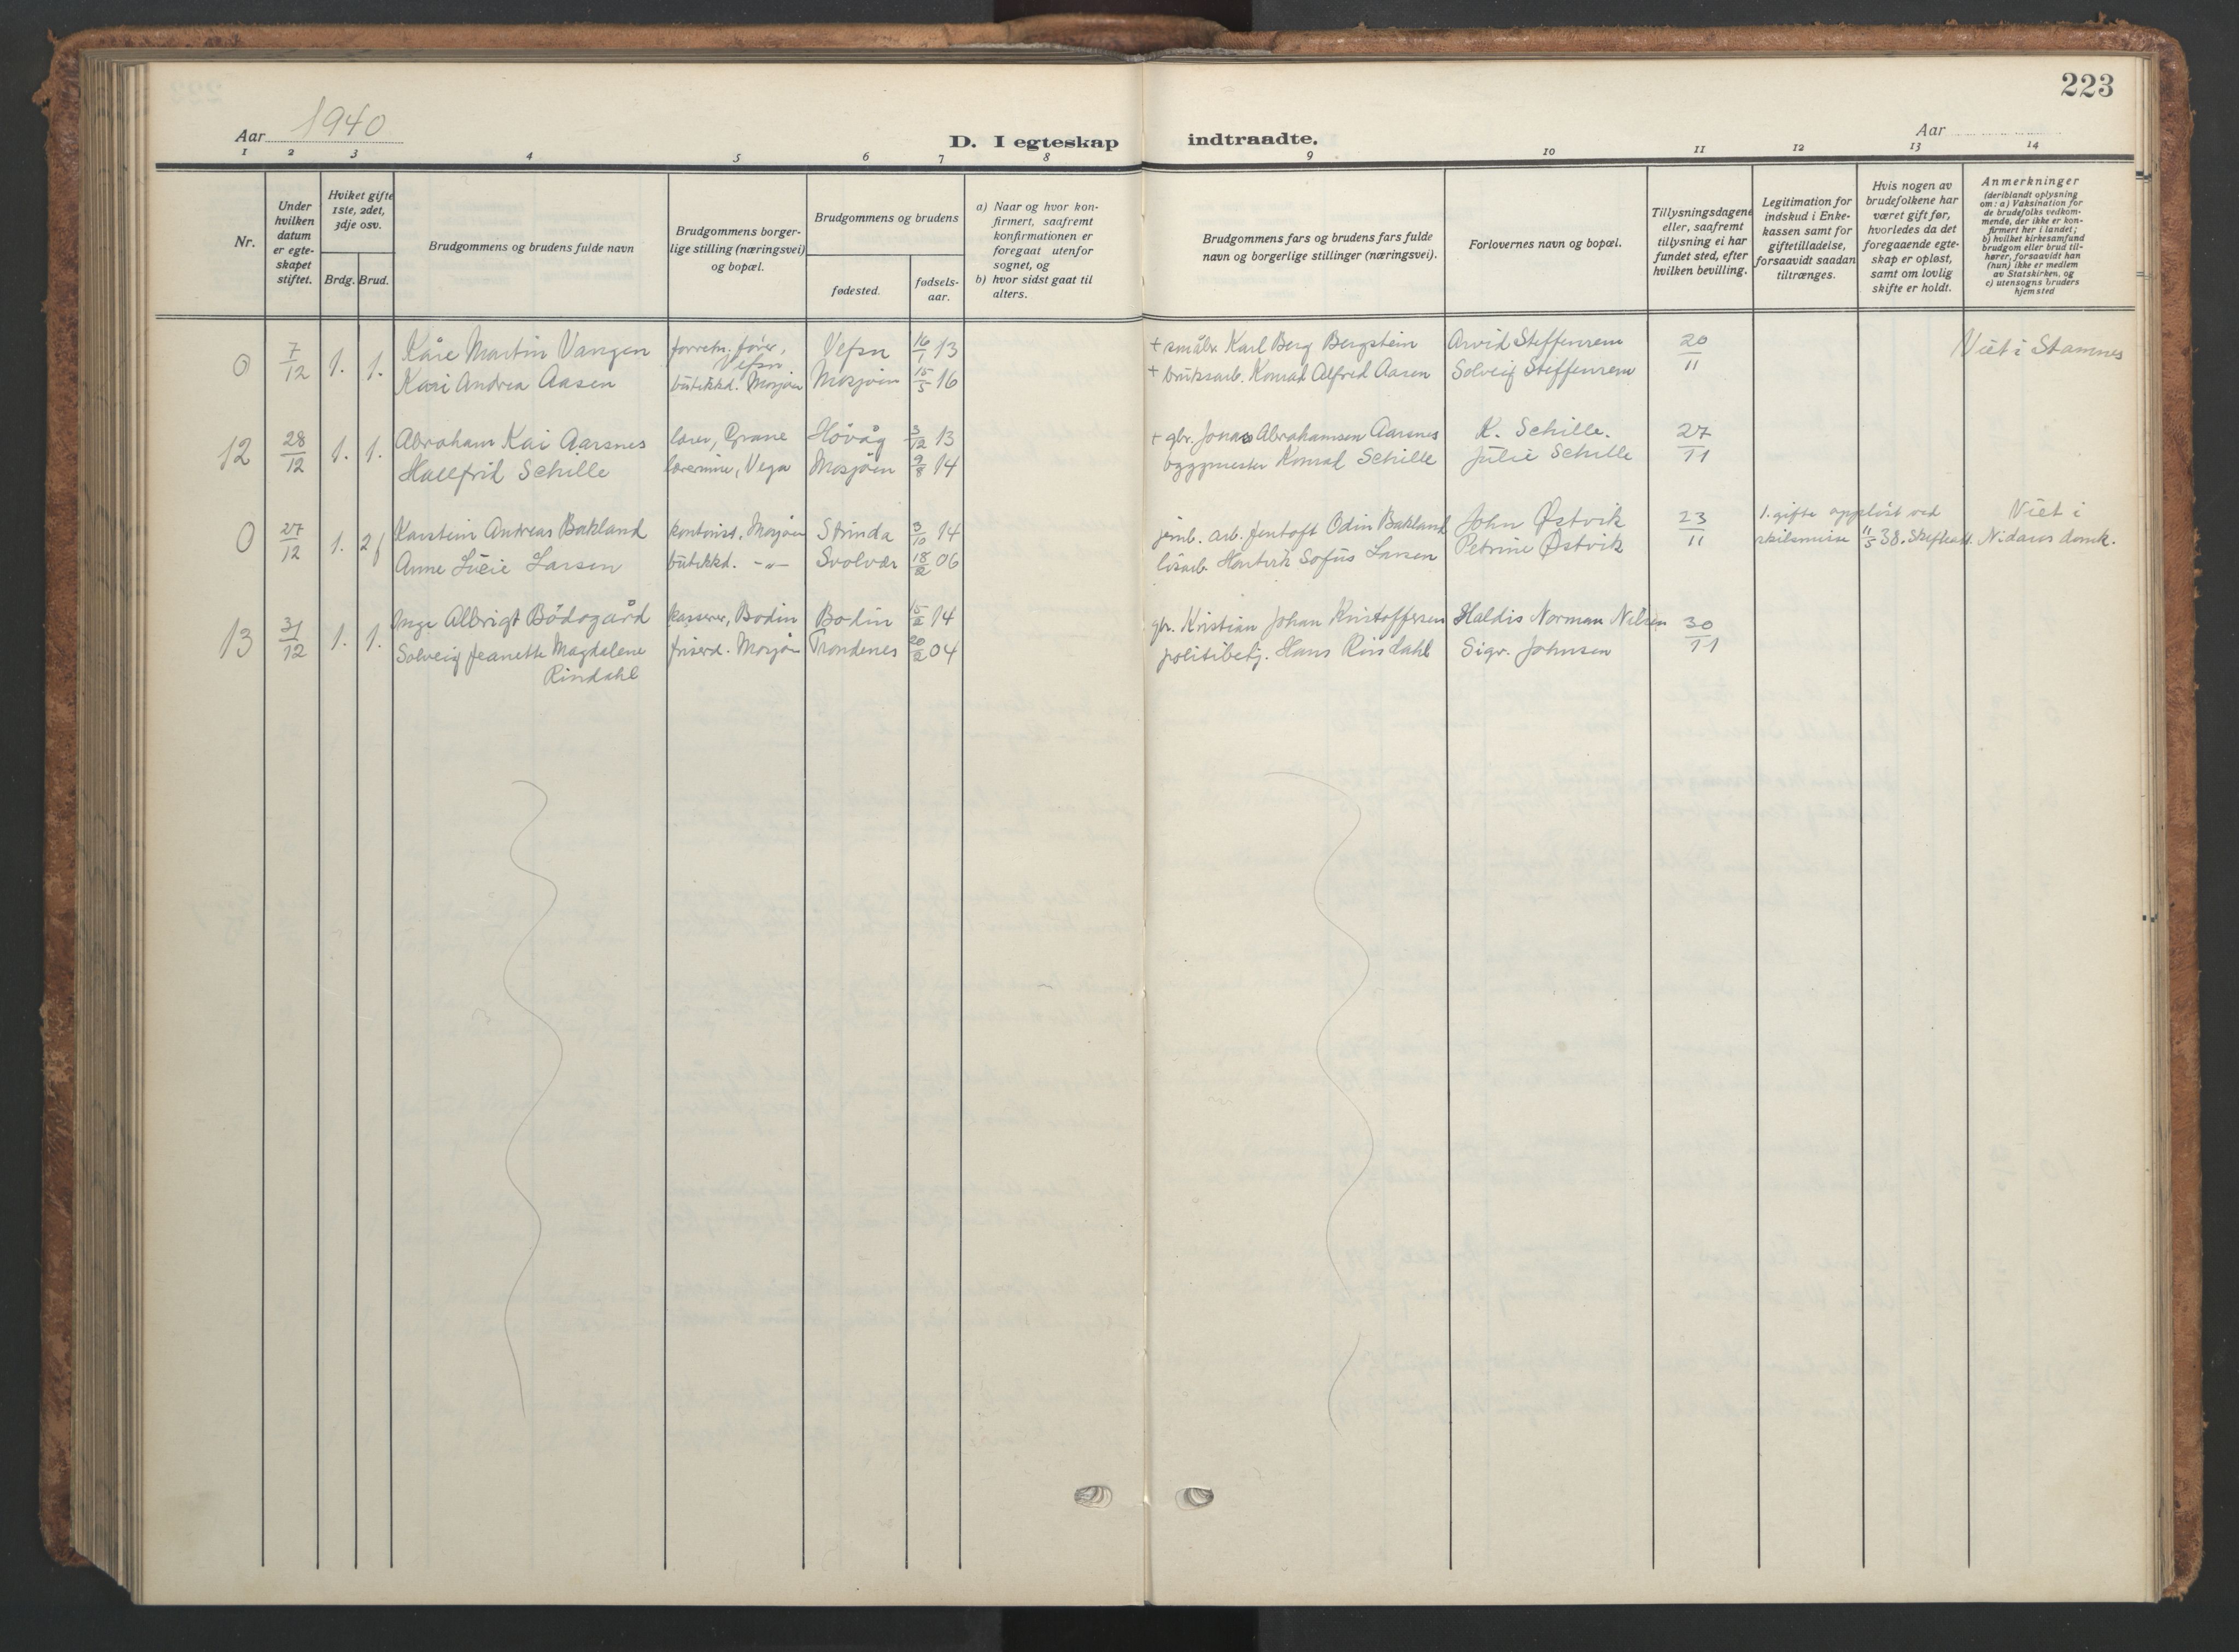 223
Aar 1940
D. I egteskap indtraadte.
Aar
1 2 3 4 5 6 7 8 9 10 11 12 13 14
Nr.
Under hvilken datum er egte-skapet stiftet.
Hviket gifte 1ste, 2det, 3dje osv.
Brdg. Brud.
Brudgommens og brudens fulde navn
Brudgommens borger-lige stilling (næringsvei) og bopæl.
Brudgommens og brudens
fødested.
fødsels-aar.
a) Naar og hvor kon-firmert, saafremt konfirmationen er foregaat utenfor sognet, og
b) hvor sidst gaat til alters.
Brudgommens fars og brudens fars fulde navn og borgerlige stillinger (næringsvei).
Forlovernes navn og bopæl.
Tillysningsdagene eller, saafremt tillysning ei har fundet sted, efter hvilken bevilling.
Legitimation for indskud i Enke-kassen samt for giftetilladelse, forsaavidt saadan tiltrænges.
Hvis nogen av brudefolkene har været gift før, hvorledes da det foregaaende egte-skap er opløst, samt om lovlig skifte er holdt.
Anmerkninger (deriblandt oplysning om: a) Vaksination for de brudefolks vedkom-mende, der ikke er kon-firmert her i landet; b) hvilket kirkesamfund brudgom eller brud til-hører, forsaavidt han (hun) ikke er medlem av Statskirken, og c) utensogns bruders hjemsted
0 7/12 1. 1. Kåre Martin Vangen forretn. fører, Vefsn Vefsn 16/1 13 + småbr. Karl Berg Bergstein Arvid Steffenrem 20/11 Viet i Stamnes
Kari Andrea Aasen butikkd. Mosjøen Mosjøen 15/5 16 + bruksarb. Konrad Alfred Aasen Solveig Steffenrem
12 28/12 1. 1. Abraham Kai Aarsnes lærer, Grane Høvåg 3/12 13 + gbr. Jonas Abrahamsen Aarsnes K. Schille. 27/11
Hallfrid Schille lærerinne, Vega Mosjøen 9/8 14 byggmester Konrad Schille Julie Schille
0 27/12 1. 2 f Karstein Andreas Bakland kontorist, Mosjøen Strinda 3/10 14 jernb. arb. Jentoft Odin Bakland John Østvik 23/11 1. gifte oppløst ved skilsmisse 11/5 38. Viet i Nidaros domk.
Anne Lucie Larsen butikkd. -"- Svolvær 18/2 06 Sofus Larsen Petrine Østvik
13 31/12 1. 1. Inge Albrigt Bødogård kasserer, Bodin Bodin 15/2 14 gbr. Kristian Johan Kristoffersen Haldis Norman Nilsen 30/11
Solveig Jeanette Magdalene Rindahl friserd. Mosjøen Trondenes 20/2 04 politibetj. Hans Rindahl Sigr. Johnsen